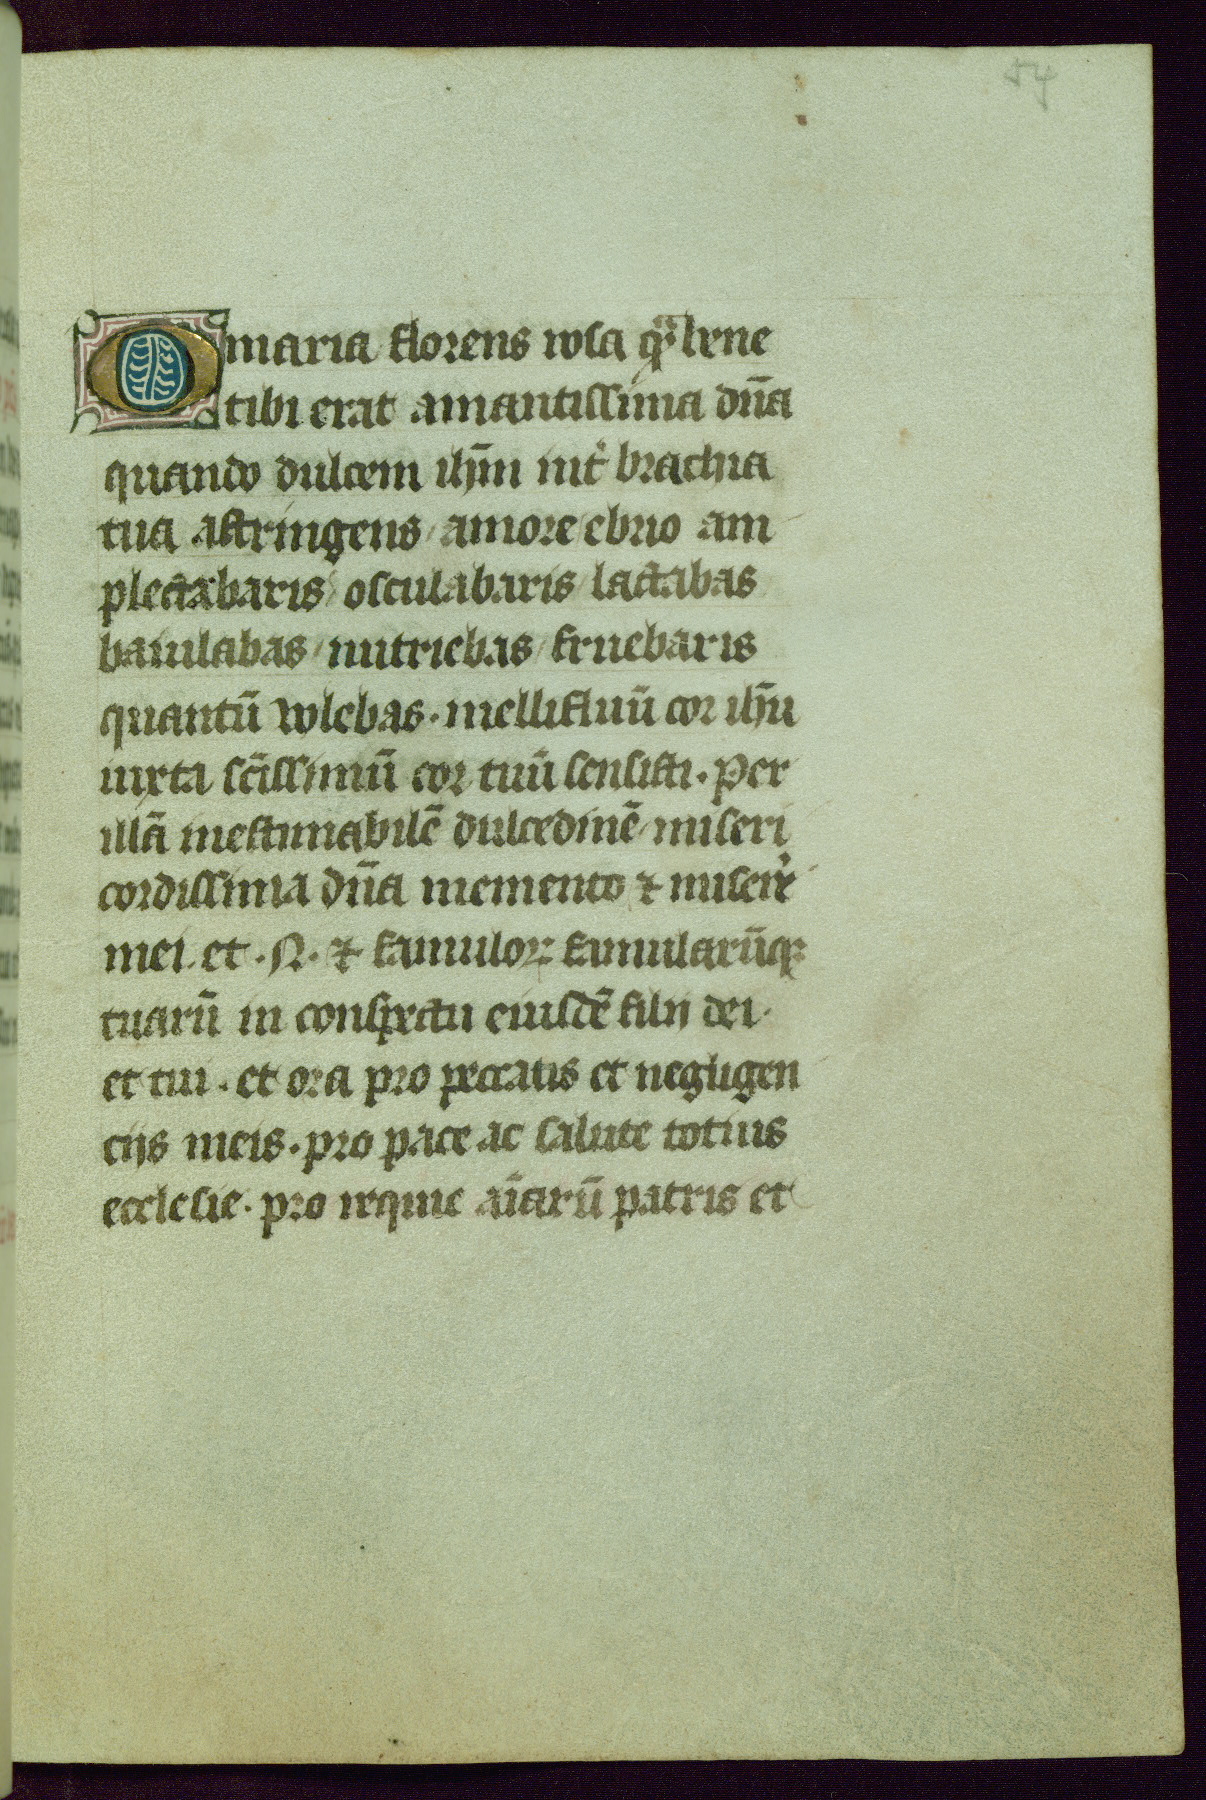 54
O maria florens rosa qᵃ bene
tibi erat amantissima dn̄a
quando dulcem ihm̄ int᷑ brachia
tua astringens / amore ebrio am
plectabaris / osculabaris / lactabas
baiulabas / nutriebas / fruebaris
quantū volebas · mellifluū cor ihū
iuxta sc̄issimū cor tuū sensisti · Per
illā inestimabilē dulcedinē / miseri
cordissima dn̄a memento ⁊ misere᷑
mei et · N · ⁊ famuloꝝ famularūqꝫ
tuarū in conspectu eiusdē filij dei ·
et tui · et ora pro peccatis et negligen
cijs meis · pro pace ac salute totius
ecclesie · pro requie aīarū patris et